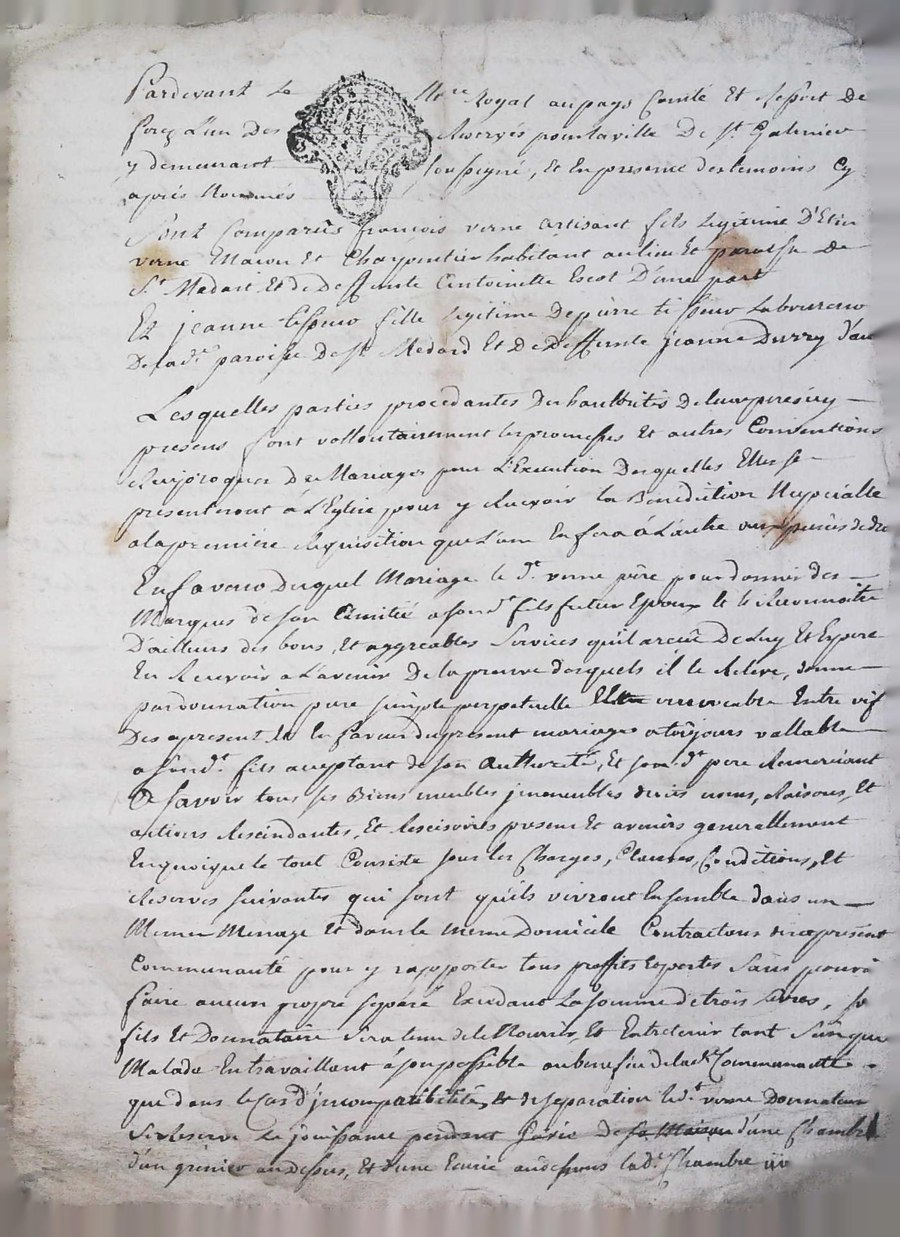 Pardevant Le Nre Royal au pays Comté et Ressort de
forez L'un des Reservés pour la ville De St Galmier
y demeurant soussigné, et En presence des temoins Cy
aprés Nommés
Sont Comparûs françois verne artisant fils Legitime D'Etie
verne Macon et Charpentier habitant au lieu et paroisse de
St Medart et de Deffunte Entoinette Escot D'une part
Et jeanne tisseur fille Legitime de pierre tisseur Laboureur
De lade paroisse De St Medard et De Deffunte jeanne Durry d'au
Lesquelles parties procedantes Des hauthorités De leurs peres icy
presens font vollontairement les promesses et autres Conventions
Reciproques de Mariages pour L'Execution Desquelles Elles se
presenteront à L'Eglise pour y Recevoir la Benediction Nupcialle
a la premiere Requisition que L'une En fera à L'autre aux peines de dro
En faveur Duquel Mariage le dt verne pere pour donner des
Marques de son Amitié a sondt fils futur Epoux le Reconnoitre
D'ailleurs des bons et aggreables Services qu'il a receu De luy et Espere
En Recevoir a L'avenir De la preuve desquels il le Releve, donne
par donnation pure simple perpetuelle irrevocable Entre vif
Des apresent En faveur du present mariage a toûjours vallable
a sondt fils aceptant de son authorité, et sondt pere Remerciant
Savoir tous ses Biens meubles jmmeubles droits noms, Raisons, et
actions Rescindantes, et Rescisoires presens et avenirs generallement
En quoique le tout Consiste sous les Charges, Clauses, Conditions, et
Reserves suivantes qui sont qu'ils vivront Ensemble dans un
Meme Menage et dans le meme Domicile Contractons dicy apresent
Communauté pour y rapporter tous proffits et pertes Sans pouvoi
faire aucun propre separé Excedant La somme de trois Livres, so
fils et Donnataire Sera tenu de le Nourrir, et Entretenir tant Sain que
Malade En travaillant à son possible au benefice de lade Communauté
que dans le Cas d'jncompatibilité, et de separation Ledt verne Donnateur
Se Reserve La jouissance pendant sa vie De sa Maison d'une Chambre
d'un grenier au dessus, et d'une Ecurie au dessous lade Chambre